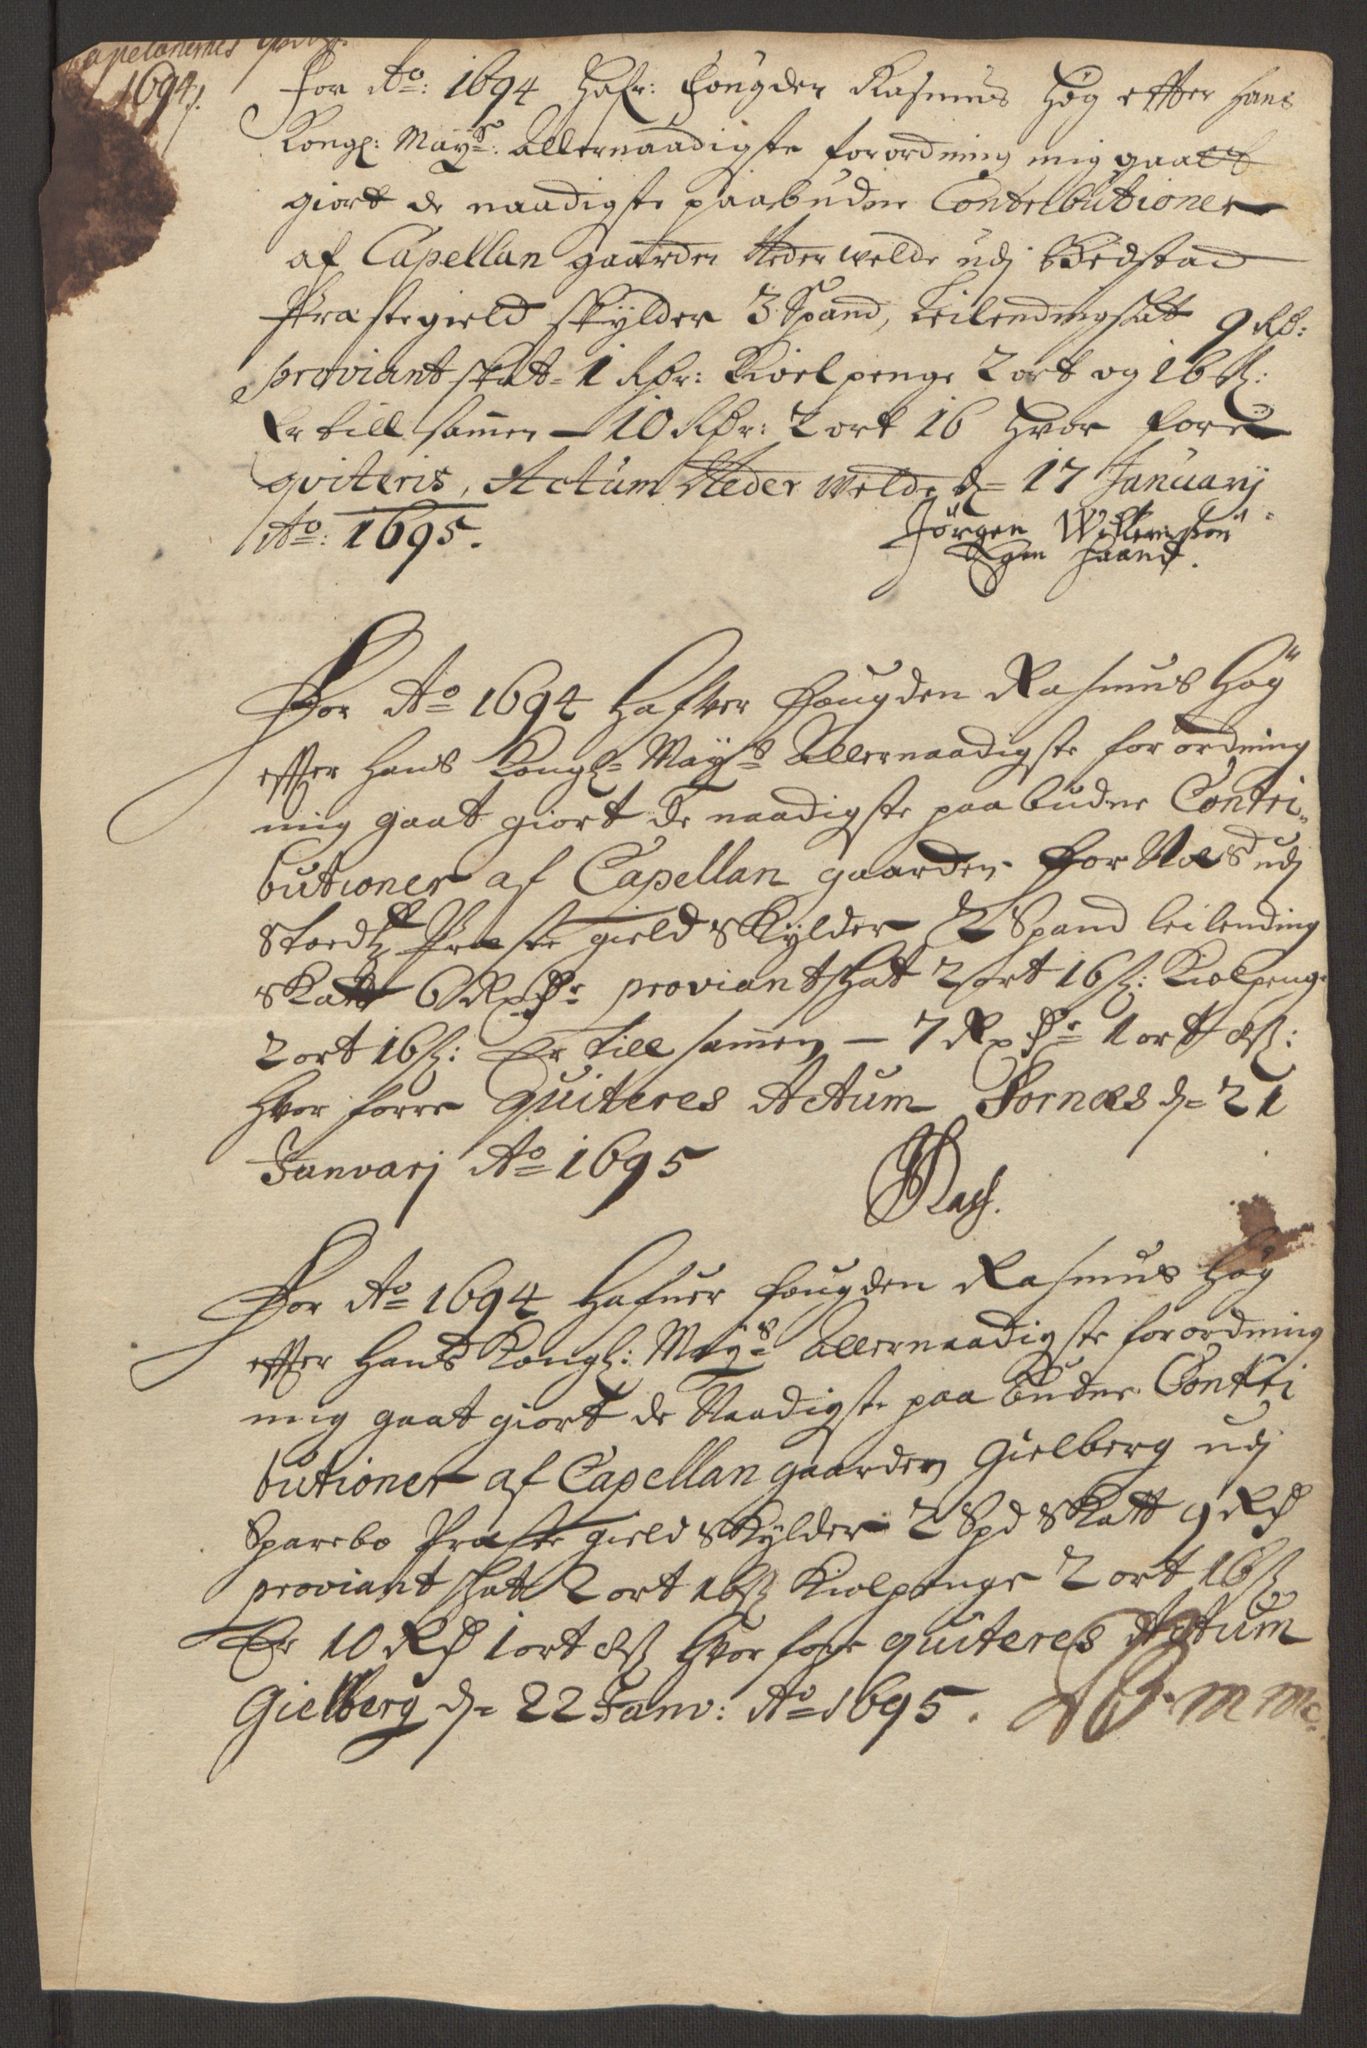 Capelanernes
1694
For Ao: 1694 Hafr: Fougden Rasmus Høg effter Hans
Kongl: Mayts: allernaadigste forordning mig gaatt
giort de naadigste paabudne Contribütioner
af Capellan gaarden Neder welde udj Bedstad
Præstegield skylder 3 Spand, Leilendingskat 9 Rdr:
proviant skat = 1 Rdr: Kiolpenge 2 ort og 16 s:
Er till samen — 10 Rdr: 2 ort 16 Hvor fore
qviteris, Actüm Neder welde d= 17 Januarij
Ao: 1695.
Jørgen Willemsøn
Egen haand.
For Ao 1694 Hafver Fougden Rasmus Høg
effter Hans Kongl= Mayts allernaadigste forordning
mig gaat giort de naadigste paabudne Contri-
butioner af Capellan gaarden For Næs udj
Præste gield skylder 2 Spand leilending
skatt 6 Rxdr proviant skat 2 ort 16 s: Kiolpeng
2 ort 16 s: Er till samen — 7 Rxdr 1 ort 8 s:
Hvor forre quiteres Actum Fornæs d= 21
Janvarj Ao 1695
For Ao 1694 Hafuer fougden Rasmus Høg
effter Hans Kongl: Mayts allernaadigste forordning
mig gaat giort de Naadigste paa budne Contri
bütioner af Capellan gaarden Gielberg udj
Sparebo Præste gield skylder 2 Spd skatt 9 Rd
proviant skatt 2 ort 16 s Kiolpenge 2 ort 16 s
Er 10 Rd 1 ort 8 s Hvor fore quiteres Actum
Gielberg d= 22 Janv: Ao 1695.